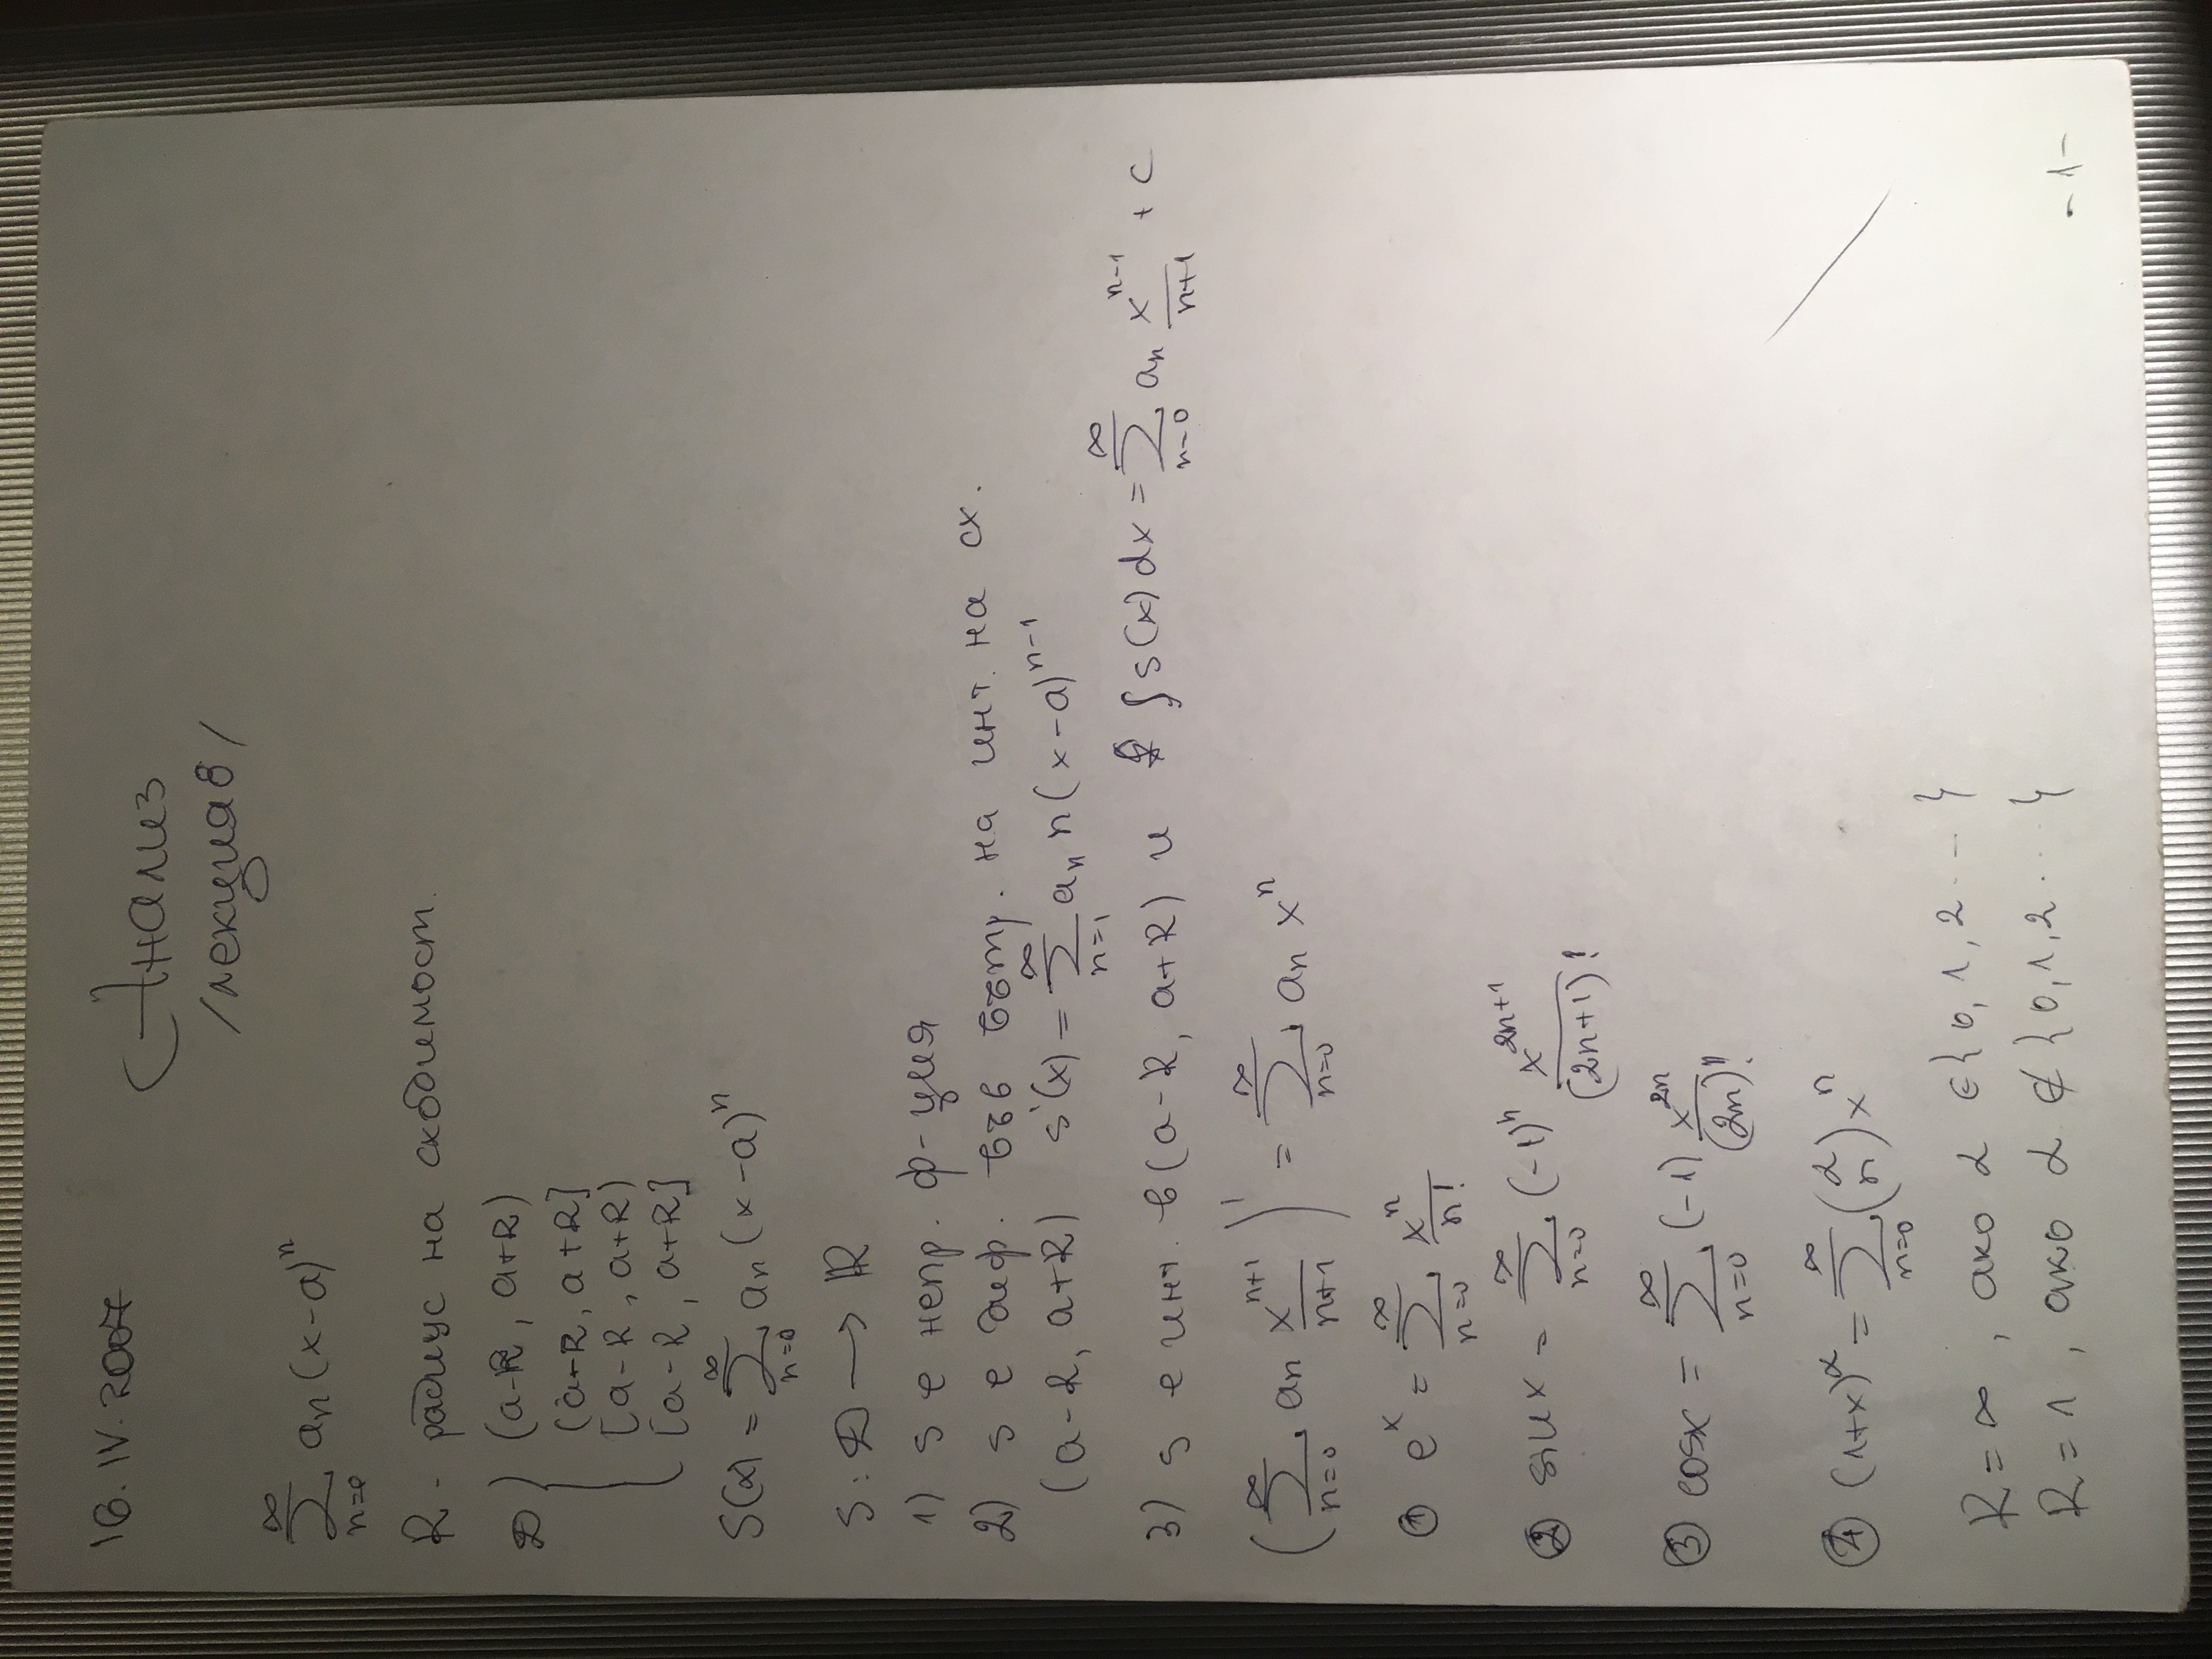 16. IV. 2007
Анализ
/лекция 8/
∑_{n=0}^{∞} a_n (x-a)^n
R - радиус на сходимост.
D { (a-R, a+R)
(a+R, a+R]
[a-R, a+R)
[a-R, a+R]
S(x) = ∑_{n=0}^{∞} a_n (x-a)^n
S : D → ℝ
1) S е непр. ф-ция
2) S е диф. във вътр. на инт. на сх.
(a-R, a+R) S'(x) = ∑_{n=1}^{∞} a_n n (x-a)^{n-1}
3) S е инт. в (a-R, a+R) и ∫ S(x) dx = ∑_{n=0}^{∞} a_n x^{n-1}/(n+1) + c
(∑_{n=0}^{∞} a_n x^{n+1}/(n+1))' = ∑_{n=0}^{∞} a_n x^n
① e^x = ∑_{n=0}^{∞} x^n/n!
② sin x = ∑_{n=0}^{∞} (-1)^n x^{2n+1}/(2n+1)!
③ cos x = ∑_{n=0}^{∞} (-1)^n x^{2n}/(2n)!
④ (1+x)^α = ∑_{n=0}^{∞} (α n) x^n
R = ∞, ако α ∈ {0, 1, 2 ... }
R = 1, ако α ∉ {0, 1, 2 ... }
- 1 -